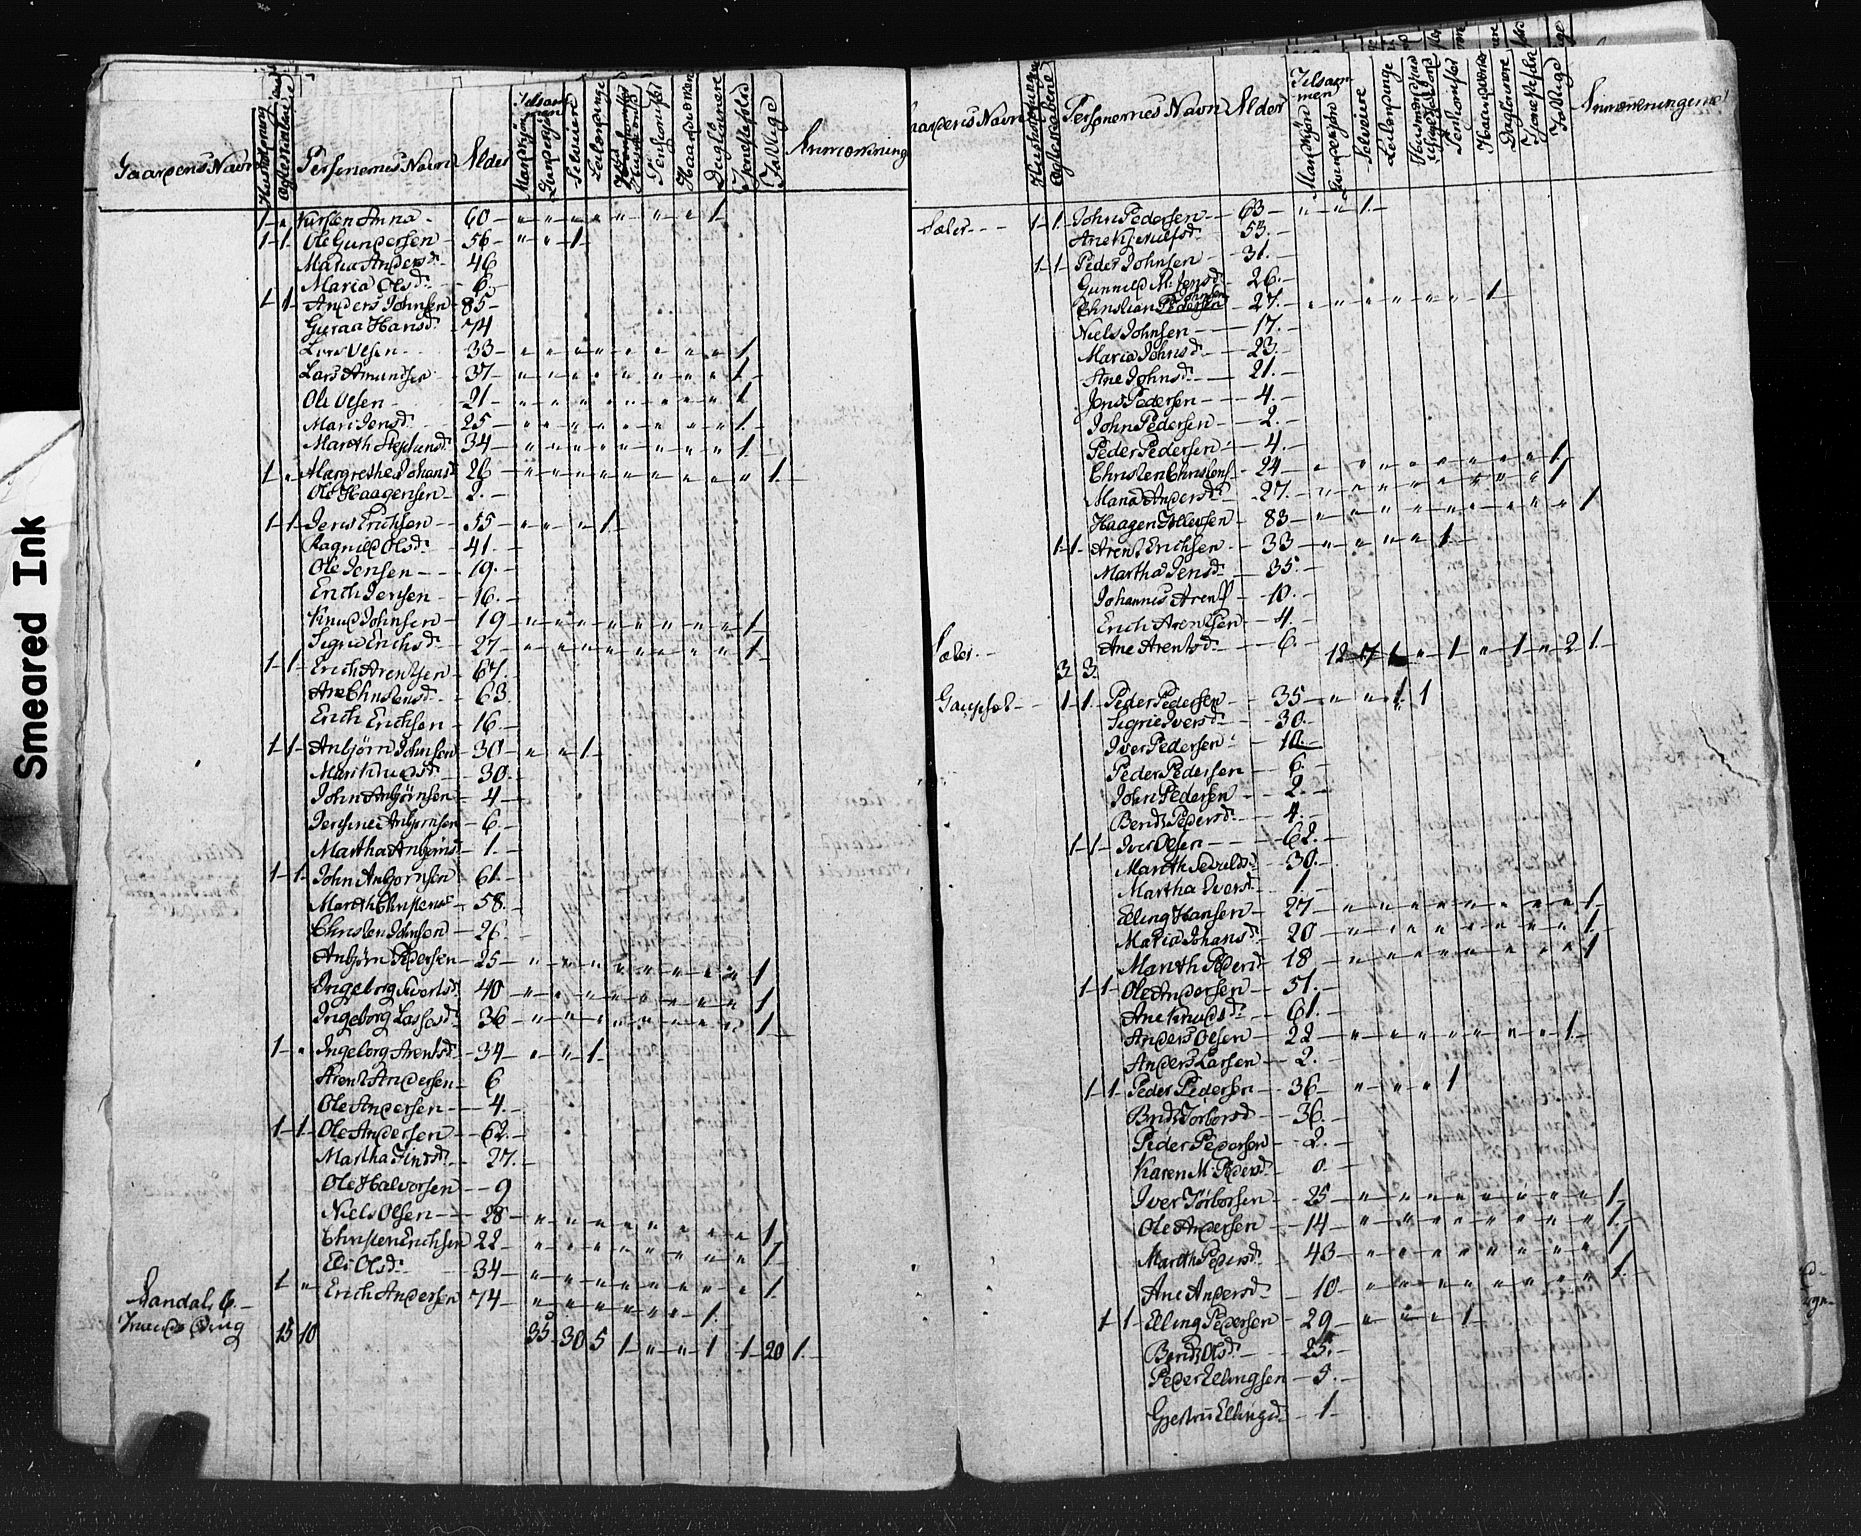 Smeared Ink
Gaardens Navn Huusholdning Ægteskabene Personernes Navn Alder Tilsammen Mandkjøn Qvindekjøn Selveiere Leilændinge Huusmænd Pensionister Haandværkere Daglönnere Tjenestefolk Fattige Anmærkning
1 „ Kirsten Anna 60 „ „ „ „ „ „ „ 1
1 1 Ole Gundersen 56 „ „ 1
Maria Andersd. 46
Maria Olsd. 6
1 1 Anders Johnsen 85
Guraa Hansd. 74
Lars Olsen 33 „ „ „ „ „ „ „ „ 1
Lars Amundsen 37 „ „ „ „ „ „ „ „ 1
Ole Olsen 21 „ „ „ „ „ „ „ „ 1
Mari Jensd. 25 „ „ „ „ „ „ „ „ 1
Marith Asjlaund 34 „ „ „ „ „ „ „ „ 1
1 „ Margrethe Johansd. 26 „ „ „ „ „ „ „ „ „ 1
Ole Haagensen 2
1 1 Jens Erichsen 55 „ „ „ 1
Ragnild Olsd. 41
Ole Jensen 19
Erich Jensen 16
Knud Johnsen 19 „ „ „ „ „ „ „ „ 1
Sigrid Erichsd. 27 „ „ „ „ „ „ „ „ 1
1 1 Erich Arentsen 67
Ane Christensd. 63
Erich Erichsen 16
1 1 Anbjørn Johnsen 30 „ „ 1
Mari Knudsd. 30
John Anbjørnsen 4
Jensine Anbjørnsen 6
Martha Anbjørnsd. 1
1 1 John Anbjørnsen 61
Marith Christensd. 58
Christen Johnsen 26
Anbjørn Pedersen 25 „ „ „ „ „ „ „ „ 1
Ingeborg Sivertsd. 40 „ „ „ „ „ „ „ „ 1
Ingeborg Lassesd. 36 „ „ „ „ „ „ „ „ 1
1 „ Ingeborg Arentsd. 34 „ „ 1
Arent Andersen 6
Ole Andersen 4
1 1 Ole Andersen 62
Martha Findsd. 27
Ole Halvorsen 9
Niels Olsen 28 „ „ „ „ „ „ „ „ 1
Christen Erichsen 22 „ „ „ „ „ „ „ „ 1
Eli Olsd. 34 „ „ „ „ „ „ „ „ 1
1 „ Erich Andersen 74 „ „ „ „ „ „ 1
15 10 35 30 5 1 „ „ 1 1 20 1
Gaardens Navn Huusholdninger Ægteskabene Personernes Navn Alder Tilsammen Mandkjøn Qvindekjøn Selveiere Leilændinge Huusmænd med Pensionister Haandværkere Daglönnere Tjenestefolk Fattige Anmærkningerne
Sæler 1 1 John Pedersen 63 „ „ 1
Ane Kjerulfsd. 53
1 1 Peder Johnsen 31
Gunnild M. Jensd. 26
Christian Pedersen Johnsen 27 „ „ „ „ „ „ „ 1
Niels Johnsen 17
Maria Johnsd. 23
Ane Johnsd. 21
Jens Pedersen 4
John Pedersen 2
Peder Pedersen 4
Christen Christens. 24 „ „ „ „ „ „ „ „ 1
Maria Andersd. 27 „ „ „ „ „ „ „ „ 1
Haagen Tollersen 83 „ „ „ „ „ „ „ „ „ 1
1 1 Arent Erichsen 33 „ „ „ „ 1
Martha Jensd. 35
Johannis Arents. 10
Erich Arentsen 4
Ane Arentsd. 6
Sæler 3 3 12 7 1 „ 1 „ 1 „ 2 1
Gaupset 1 1 Peder Pedersen 35 „ „ 1 1
Sigrie Iversd. 30
Iver Pedersen 10
Peder Pedersen 6
John Pedersen 2
Berit Pedersd. 4
1 1 Iver Olsen 62
Marith Sevaldsd. 30
Martha Iversd. 1
Elling Hansen 27 „ „ „ „ „ „ „ „ 1
Maria Johansd. 20 „ „ „ „ „ „ „ „ 1
Marith Pedersd. 18 „ „ „ „ „ „ „ „ 1
1 1 Ole Andersen 51
Ane Knudsd. 61
Anders Olsen 22 „ „ „ „ „ „ „ „ 1
Anders Larsen 2
1 1 Peder Pedersen 36 „ „ „ 1
Berit Torborsd. 36
Peder Pedersen 2
Karen M. Pedersd. 0
Iver Torborsen 25 „ „ „ „ „ „ „ „ 1
Ole Andersen 14 „ „ „ „ „ „ „ „ 1
Marith Pedersd. 43 „ „ „ „ „ „ „ „ 1
Ane Andersd. 10 „ „ „ „ „ „ „ „ 1
1 1 Elling Pedersen 29 „ „ „ 1
Berit Olsd. 25
Peder Ellingsen 5
Gjertru Ellingsd. 1